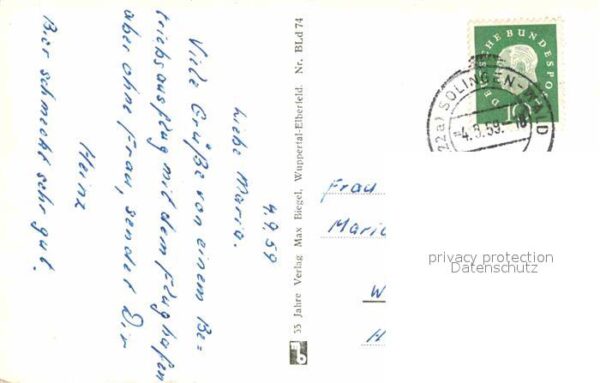 4.9.59
Liebe Maria.
Viele Grüße von einem Be=
triebsausflug mit dem Flughafen
aber ohne Frau, sendet Dir
Heinz
Bier schmeckt sehr gut.
55 Jahre Verlag Max Biegel, Wuppertal-Elberfeld. Nr. BLd 74
DEUTSCHE BUNDESPOST
10
(22a) SOLINGEN-WALD
-4.9.59.-18
Frau
Maria
W
H
privacy protection
Datenschutz